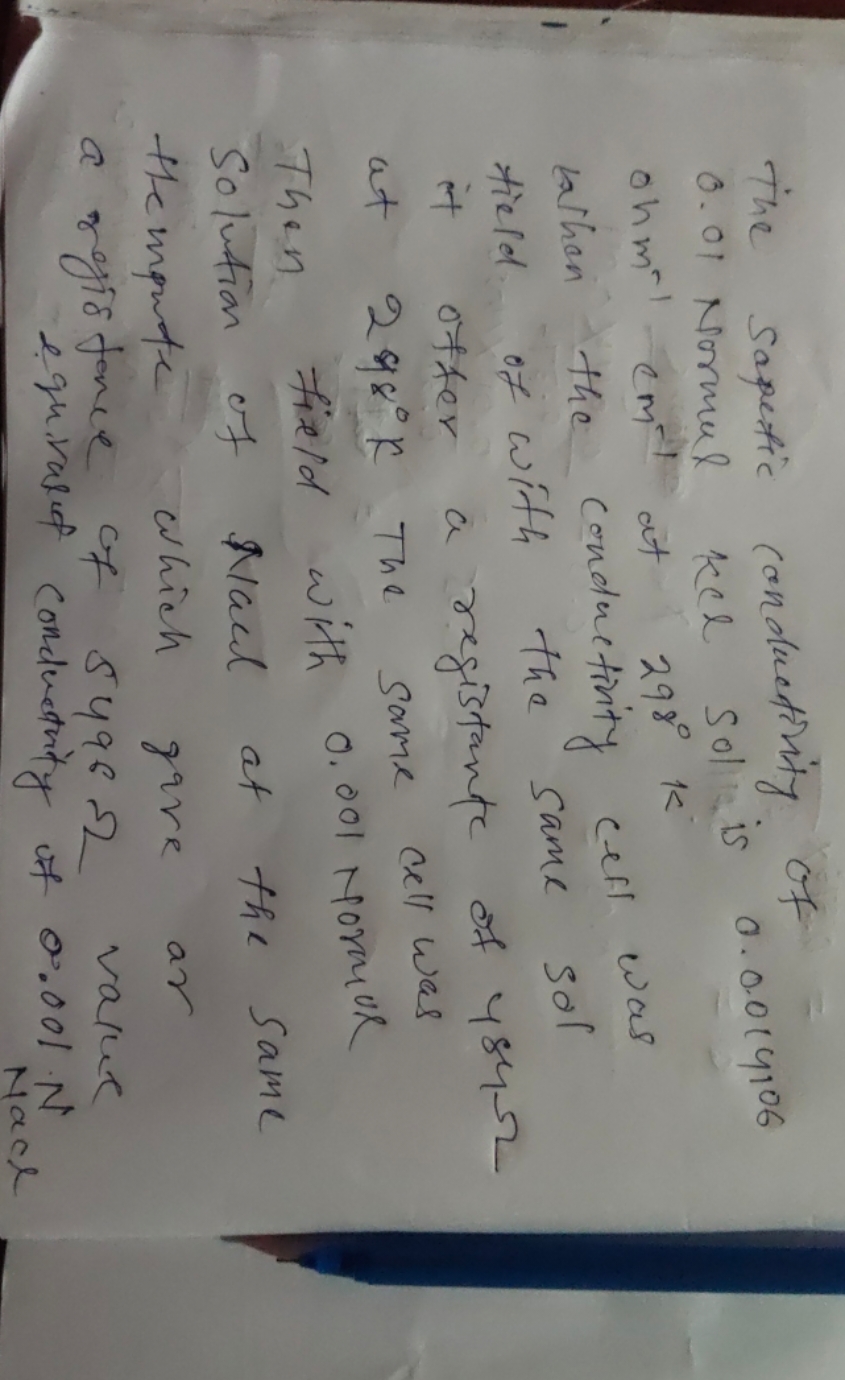 The Sapetic conductivity of
0.01 Normal KCl Sol is 0.0014106
ohm⁻¹ cm⁻¹ at 298° K
when the conductivity cell was
field of with the same sol
it other a registante of 484Ω
at 298°K The same cell was
Then field with 0.001 Normal
Solution of Nacl at the same
themprate which gave ar
a registance of 5496Ω value
equivalet conductivity of 0.001 N
Nacl